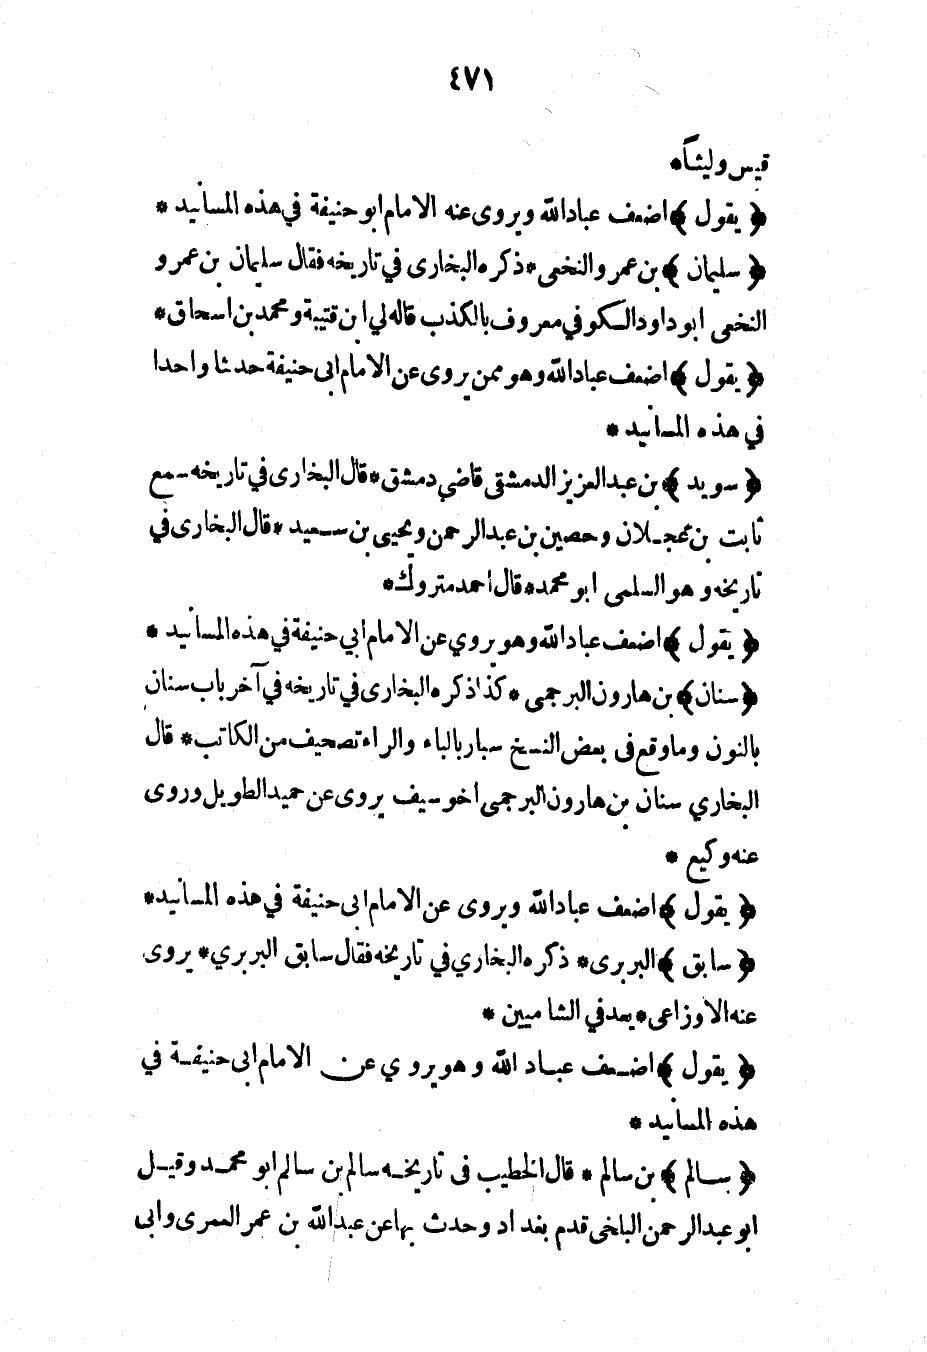 ٤٧١
قيس وليثاً*
﴿ يقول ﴾ اضعف عباد الله ويروى عنه الامام ابو حنيفة في هذه المسانيد *
﴿ سليمان ﴾ بن عمرو النخعى * ذكره البخارى في تاريخه فقال سليمان بن عمرو
النخعى ابو داود الكوفي معروف بالكذب قاله لي ابن قتيبة ومحمد بن اسحاق *
﴿ يقول ﴾ اضعف عباد الله وهو ممن يروى عن الامام ابى حنيفة حدثا واحدا
في هذه المسانيد *
﴿ سويد ﴾ بن عبد العزيز الدمشقى قاضي دمشق * قال البخارى في تاريخه سمع
ثابت بن عجلان وحصين بن عبد الرحمن ويحيى بن سعيد * قال البخارى في
تاريخه وهو السلمى ابو محمد * قال احمد متروك *
﴿ يقول ﴾ اضعف عباد الله وهو يروي عن الامام ابي حنيفة في هذه المسانيد *
﴿ سنان ﴾ بن هارون البرجمى * كذا ذكره البخارى في تاريخه في آخر باب سنان
بالنون وما وقع فى بعض النسخ سبار بالباء والراء تصحيف من الكاتب * قال
البخاري سنان بن هارون البرجمى اخو سيف يروى عن حميد الطويل وروى
عنه وكيع *
﴿ يقول ﴾ اضعف عباد الله ويروى عن الامام ابى حنيفة في هذه المسانيد *
﴿ سابق ﴾ البربرى * ذكره البخاري في تاريخه فقال سابق البربري * يروى
عنه الاوزاعى * يعد في الشاميين *
﴿ يقول ﴾ اضعف عباد الله وهو يروي عن الامام ابى حنيفة في
هذه المسانيد *
﴿ سالم ﴾ بن سالم * قال الخطيب فى تاريخه سالم بن سالم ابو محمد وقيل
ابو عبد الرحمن البلخى قدم بغداد وحدث بها عن عبد الله بن عمر العمرى وابى